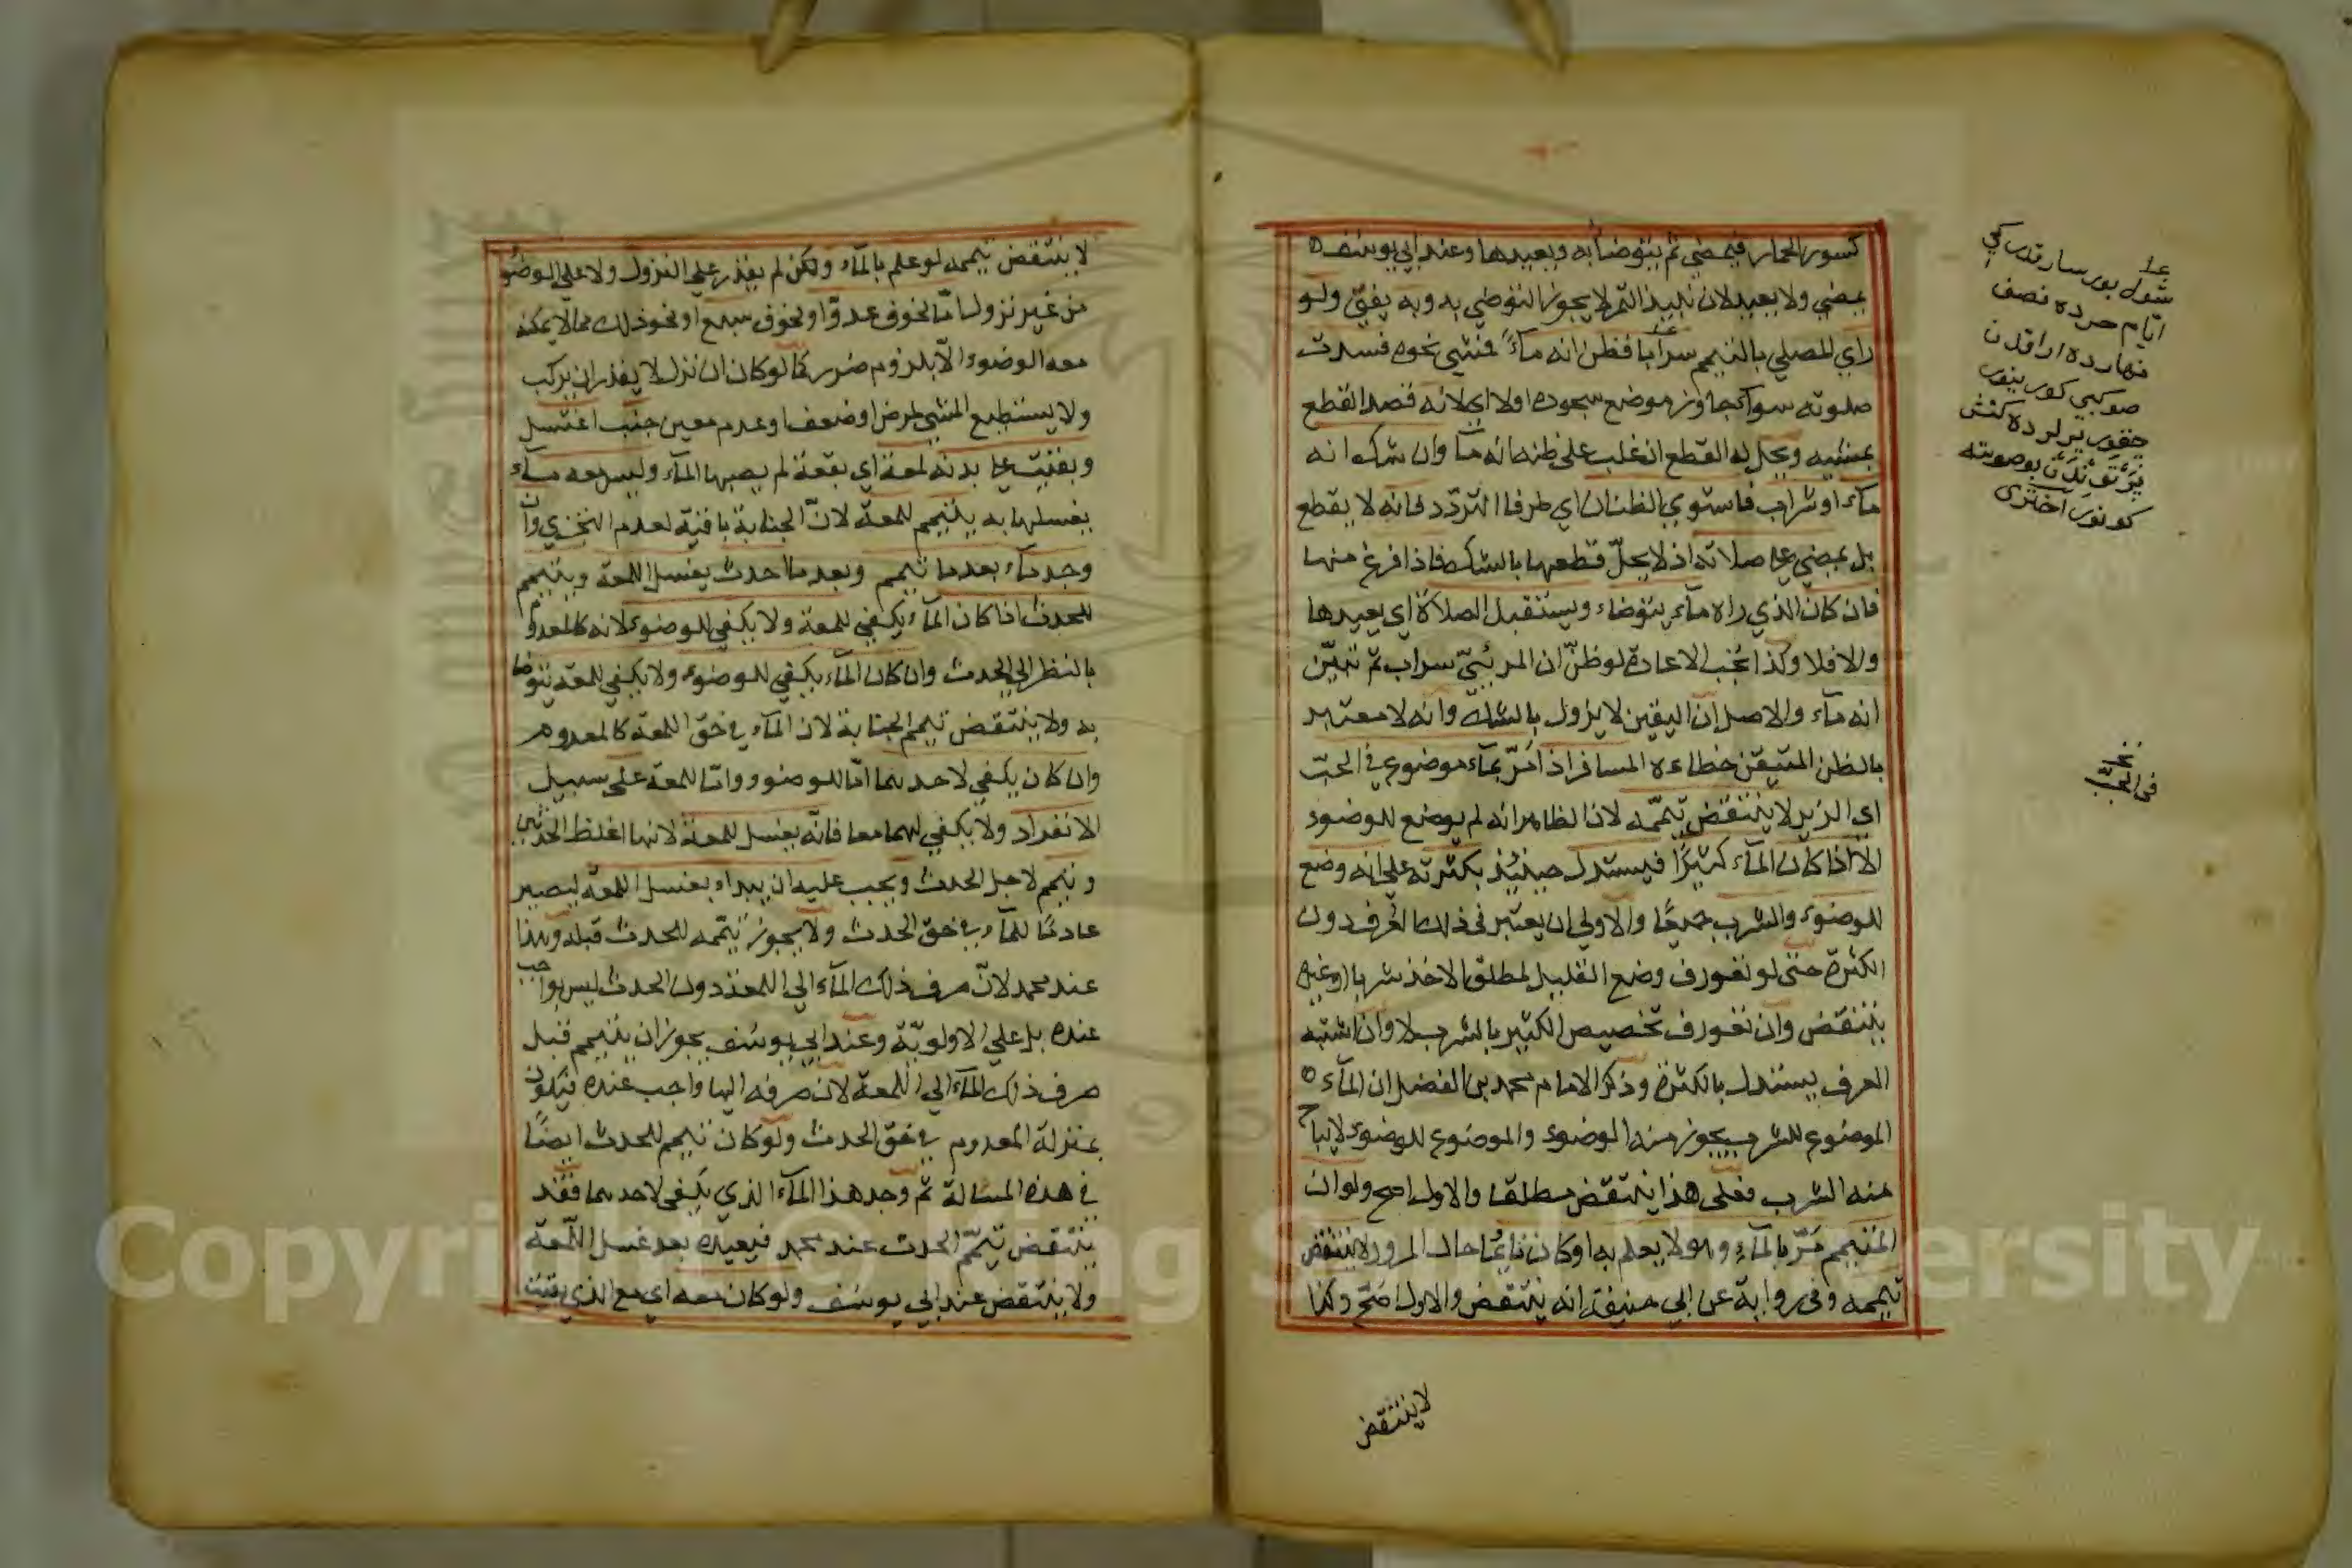 كسور الحمار فيمضي ثم يتوضأ به ويعيدها وعند ابي يوسف
يمضي ولا يعيد لان نبيذ التمر لا يجوز التوضي به وبه يفتى ولو
راي المصلي بالتيمم سرابا فظن انه ماء فمشي نحوه فسدت
صلوته سواء تجاوز موضع سجوده اولا اي لانه قصد القطع
بمشيه ويحل له القطع ان غلب على ظنه انه ماء وان شك انه
ماء او شراب فاستوي الظنان اي طرفا التردد فانه لا يقطع
بل يمضي على صلاته اذ لا يحل قطعها بالشك فاذا فرغ منها
فان كان الذي راه ماء يتوضاء ويستقبل الصلاة اي يعيدها
والا فلا وكذا تجب الاعادة لو ظن ان المرئي سراب ثم تبين
انه ماء والاصل ان اليقين لا يزول بالشك وانه لا معتبر
بالظن المتيقن خطاءه المسافر اذا مر بماء موضوع في الحب
اي الزير لا ينتقض تيممه لان الظاهر انه لم يوضع للوضوء
الا اذا كان الماء كثيرا فيستدل حينئذ بكثرته على انه وضع
للوضوء والشرب جميعا والاولي ان يعتبر في ذلك العرف دون
الكثرة حتى لو تعورف وضع القليل لمطلق الاخذ شربا او غيره
ينتقض وان تعورف تخصيص الكثير بالشرب لا وان اشتبه
العرف يستدل بالكثرة وذكر الامام محمد بن الفضل ان الماء
الموضوع للشرب يجوز منه الوضوء والموضوع للوضوء لايباح
منه الشرب فعلى هذا ينتقض مطلقا والاول اصح ولو ان
المتيمم مر بالماء وهو لا يعلم به او كان نائما حال المرور لا ينتقض
تيممه وفي رواية عن ابي حنيفة انه ينتقض والاول اصح وكذا
لا ينتقض
شول بور سارقدر كي
ايام حرده نصف
نهارده اراقدن
صوكبي كورينور
چقور يرلرده
اختري
نخ
في الحب
لا ينتقض تيممه لو علم بالماء ولكن لم يقدر على النزول ولا على الوضوء
من غير نزول اما لخوف عدو او لخوف سبع او نحو ذلك مما لا يمكنه
معه الوضوء الا بلزوم ضرر كما لو كان ان نزل لا يقدر ان يركب
ولا يستطيع المشي لمرض او ضعف وعدم معين جنب اغتسل
وبقيت على بدنه لمعة اي بقعة لم يصبها الماء وليس معه ماء
يغسلها به يتيمم للمعة لان الجنابة باقية لعدم التجزي وان
وجد ماء بعد ما تيمم وبعد ما احدث يغسل اللمعة ويتيمم
للحدث اذا كان الماء يكفي للمعة ولا يكفي للوضوء لانه كالمعدوم
بالنظر الى الحدث وان كان الماء يكفي للوضوء ولا يكفي للمعة يتوضأ
به ولا ينتقض تيمم الجنابة لان الماء في حق اللمعة كالمعدوم
وان كان يكفي لاحدهما اما للوضوء واما للمعة على سبيل
الانفراد ولا يكفي لهما معا فانه يغسل للمعة لانها اغلظ الحدثين
وتيمم لاجل الحدث ويجب عليه ان يبداء بغسل اللمعة ليصير
عادما للماء في حق الحدث ولا يجوز تيممه للحدث قبله وهذا
عند محمد لان صرف ذلك الماء الي اللمعة دون الحدث ليس بواجب
عنده بل علي الاولوية وعند ابي يوسف يجوز ان يتيمم قبل
صرف ذلك الماء الي اللمعة لان صرفه اليها واجب عنده فيكون
بمنزلة المعدوم في حق الحدث ولو كان تيمم للحدث ايضا
في هذه المسالة ثم وجد هذا الماء الذي يكفي لاحدهما فقد
ينتقض تيمم الحدث عند محمد فيعيده بعد غسل اللمعة
ولا ينتقض عند ابي يوسف ولو كان معه اي مع الذي بقيت
Copyright © King Saud University